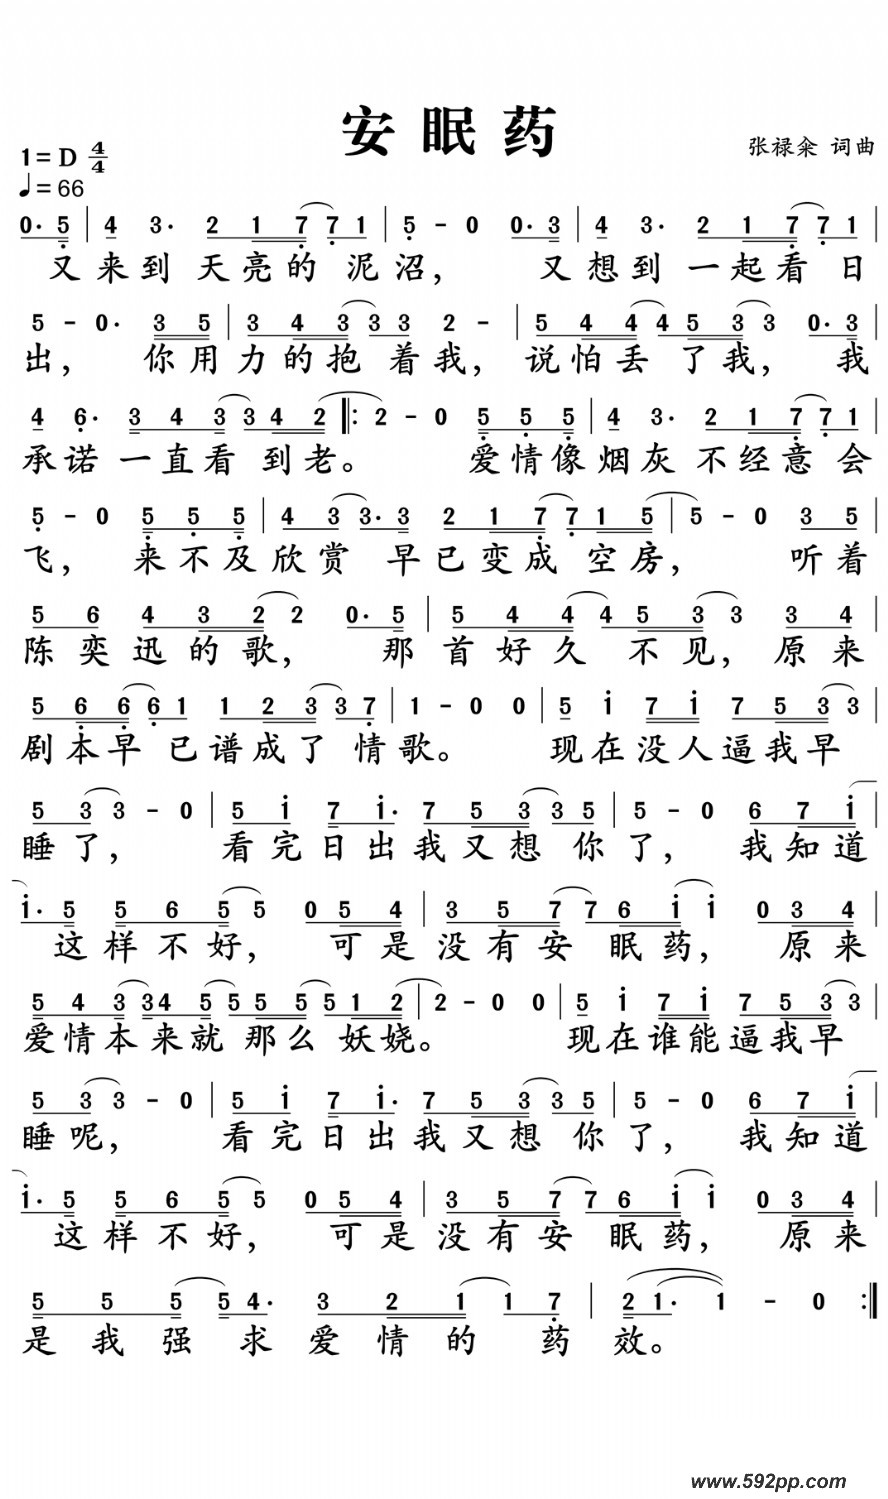 安眠药
1=D 4/4
张禄籴 词曲
♩=66
0· 5 | 4 3· 2 1 7 7 1 | 5 - 0 0· 3 | 4 3· 2 1 7 7 1 |
又来到天亮的泥沼， 又想到一起看日
5 - 0· 3 5 | 3 4 3 3 3 2 - | 5 4 4 4 5 3 3 0· 3 |
出， 你用力的抱着我，说怕丢了我，我
4 6· 3 4 3 3 4 2 ‖: 2 - 0 5 5 5 | 4 3· 2 1 7 7 1 |
承诺一直看到老。 爱情像烟灰不经意会
5 - 0 5 5 5 | 4 3 3· 3 2 1 7 7 1 5 | 5 - 0 3 5
飞， 来不及欣赏早已变成空房， 听着
5 6 4 3 2 2 0· 5 | 5 4 4 4 5 3 3 3 4 |
陈奕迅的歌， 那首好久不见，原来
5 6 6 6 1 1 2 3 3 7 | 1 - 0 0 | 5 i 7 i 7 5 3 3
剧本早已谱成了情歌。 现在没人逼我早
5 3 3 - 0 | 5 i 7 i· 7 5 3 3 5 | 5 - 0 6 7 i
睡了， 看完日出我又想你了， 我知道
i· 5 5 6 5 5 0 5 4 | 3 5 7 7 6 i i 0 3 4 |
这样不好， 可是没有安眠药， 原来
5 4 3 3 4 5 5 5 5 5 1 2 | 2 - 0 0 | 5 i 7 i 7 5 3 3
爱情本来就那么妖娆。 现在谁能逼我早
5 3 3 - 0 | 5 i 7 i· 7 5 3 3 5 | 5 - 0 6 7 i
睡呢， 看完日出我又想你了， 我知道
i· 5 5 6 5 5 0 5 4 | 3 5 7 7 6 i i 0 3 4 |
这样不好， 可是没有安眠药， 原来
5 5 5 5 4· 3 2 1 1 7 | 2 1· 1 - 0 :‖
是我强求爱情的药效。
www.592pp.com